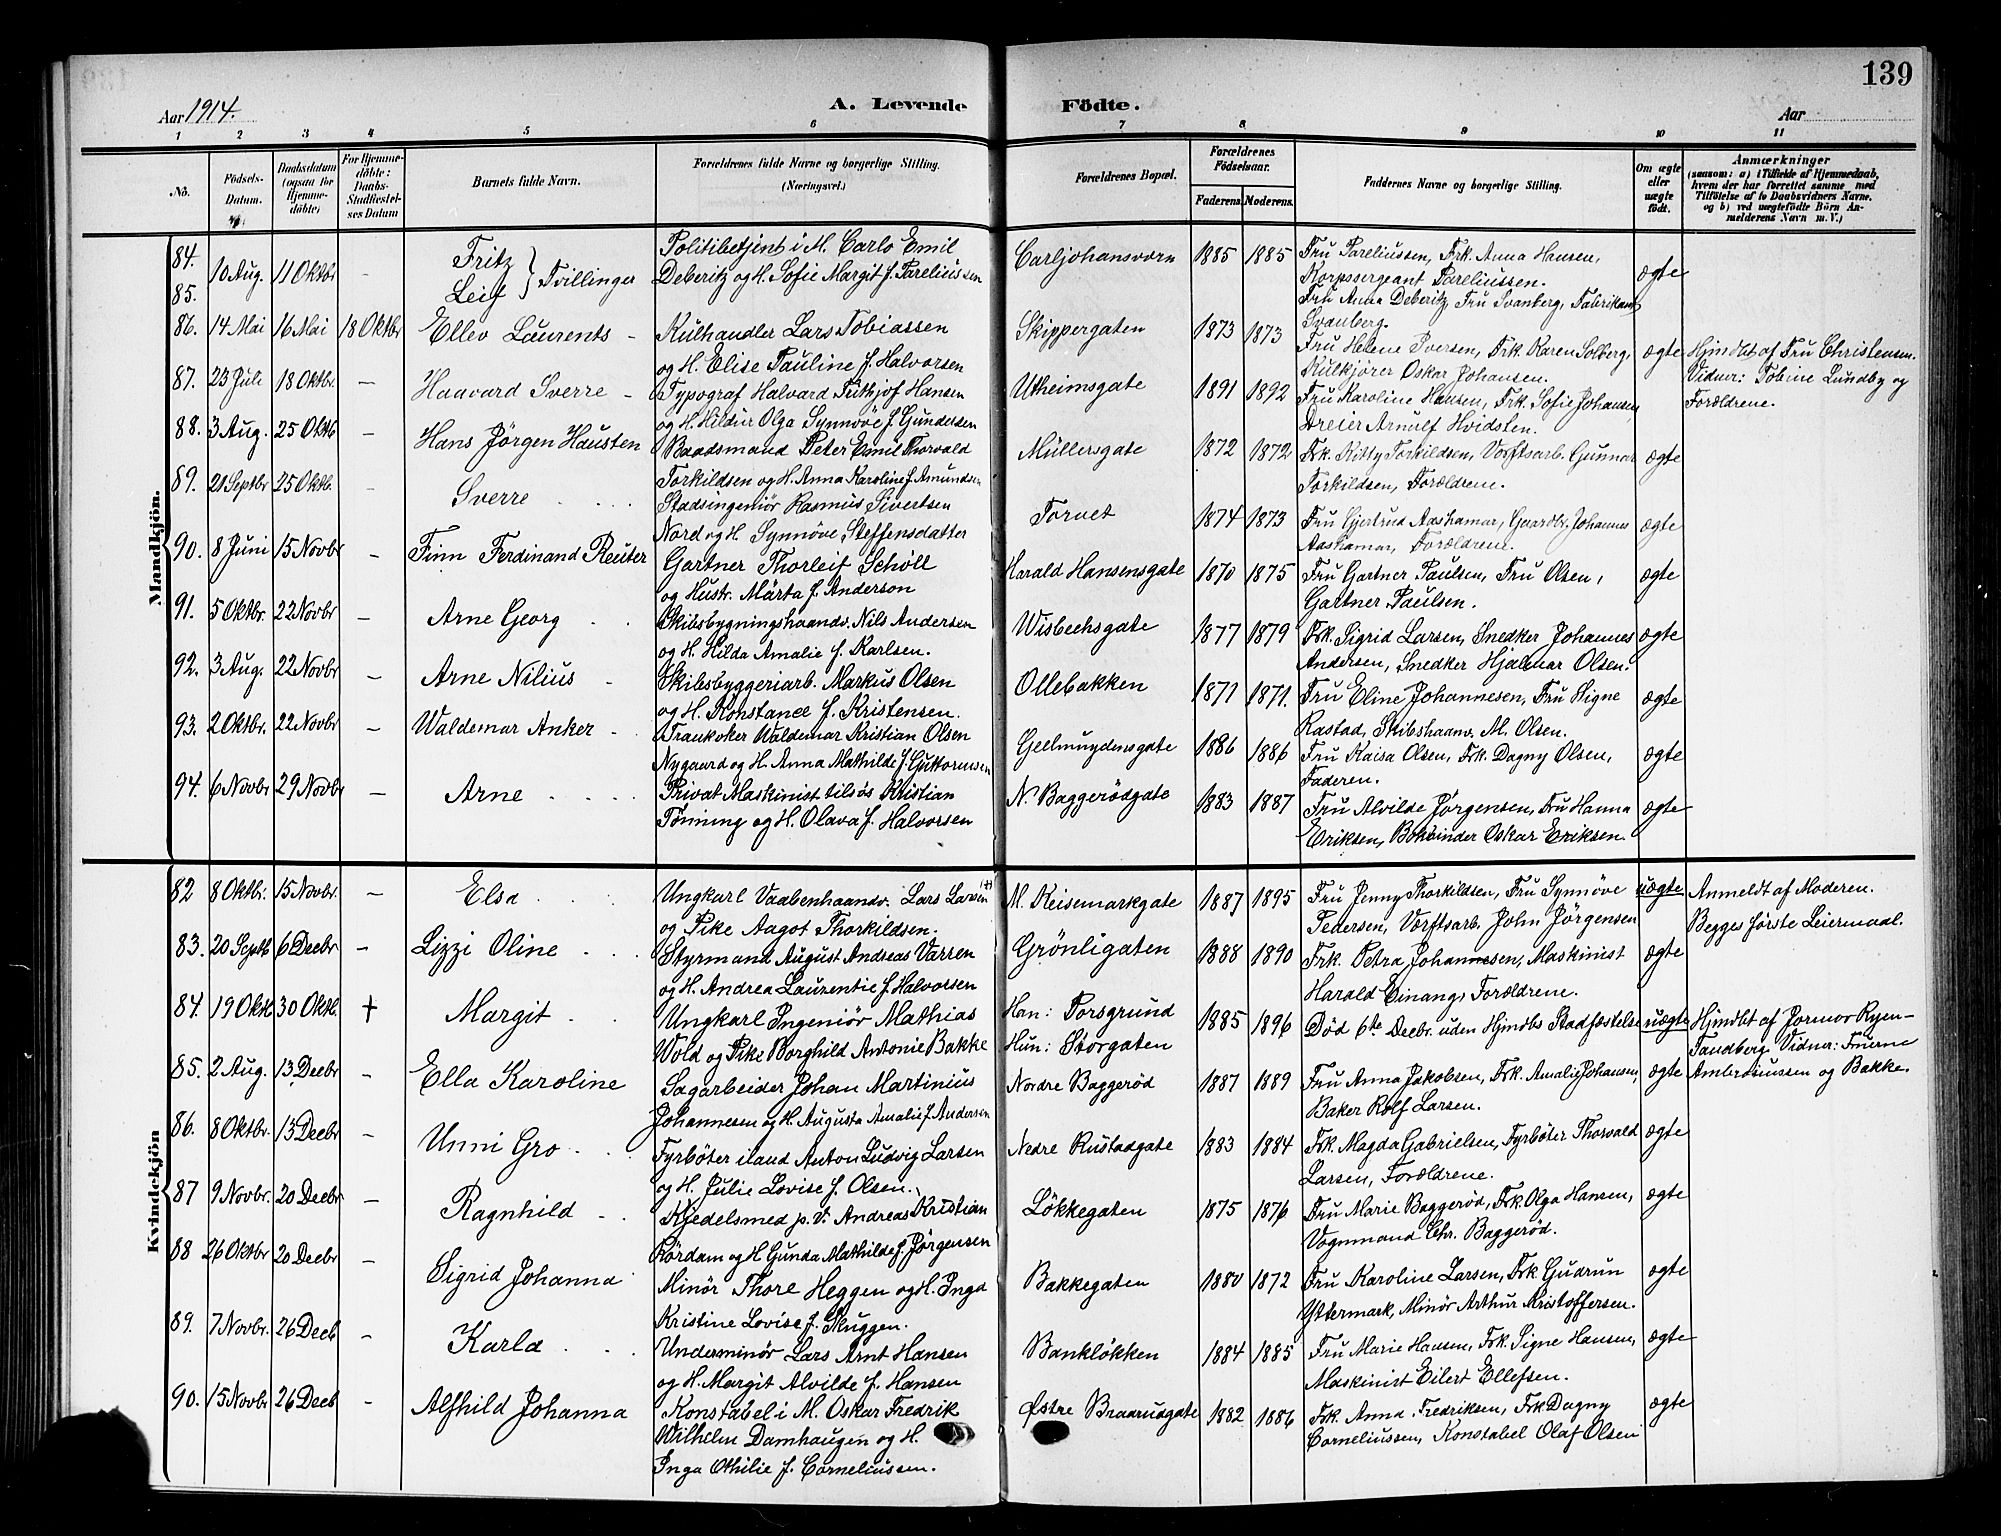 139
Aar 1914.
A. Levende Födte.
Aar
1 2 3 4 5 6 7 8 9 10 11
No.
Födsels-Datum.
Daabsdatum (ogsaa for Hjemmedöbte)
For Hjemmedöbte: Daabs-Stadfæstelses Datum
Barnets fulde Navn.
Forældrenes fulde Navne og borgerlige Stilling. (Næringsvei.)
Forældrenes Bopæl.
Forældrenes Födselsaar.
Faderens. Moderens.
Faddernes Navne og borgerlige Stilling.
Om ægte eller uægte födt.
Anmærkninger
(saasom: a) i Tilfælde af Hjemmedaab, hvem der har forrettet samme med Tilföielse af to Daabsvidners Navne. og b) ved uægtefödte Börn Anmelderens Navn m. V.)
Mandkjön.
84. 85. 10 Aug. 11 Oktbr - Fritz Leif } Tvillinger
Politibetjent i M. Carlo Emil
Deberitz og H. Sofie Margit f. Pareliussen
Carljohansvorn 1885 1885
Fru Pareliussen, Frk. Anna Hansen,
Korpssergeant Pareliussen.
Fru Anna Deberitz, Fru Svanberg, Fabrikant
Svanberg.
ægte
86. 14 Mai 16 Mai 18 Oktbr Ellev Laurents -
Kulhandler Lars Tobiassen
og H. Elise Pauline f. Halvorsen
Skippergaten 1873 1873
Fru Helene Iversen, Frk. Karen Solberg,
Kulkjörer Oskar Johansen.
ægte
Hjmdbt af Fru Christensen.
Vidner: Tobine Lundby og
Forældrene.
87. 23 Juli 18 Oktbr. - Haavard Sverre -
Typograf Halvard Frithjof Hansen
og H. Hildur Olga Synnöve f. Gundersen
Utheimsgate 1891 1892
Fru Karoline Hansen, Frk. Sofie Johansen,
Dreier Arnulf Hvidsten.
ægte
88. 3 Aug. 25 Oktb - Hans Jörgen Hausten
Baadsmand Peter Emil Thorvald
Torkildsen og H. Anna Karoline f. Amundsen
Müllersgate 1872 1872
Frk. Kitty Torkildsen, Værftsarb. Gunnar
Torkildsen, Forældrene.
ægte
89. 21 Septbr 25 Oktb. - Sverre
Stadsingeniör Rasmus Sivertsen
Nord og H. Synnöve Steffensdatter
Torvet 1874 1873
Fru Gjertrud Aashamar, Gaardbr. Johannes
Aashamar, Forældrene.
ægte
90. 8 Juni 15 Novbr - Finn Ferdinand Reuter
Gartner Thorleif Scholl
og Hustr. Märta f. Anderson
Harald Hansensgate 1870 1875
Fru Gartner Paulsen, Fru Olsen,
Gartner Paulsen.
ægte
91. 5 Oktbr. 22 Novbr - Arne Georg
Skibsbygningshaandv. Nils Andersen
og H. Hilda Amalie f. Karlsen.
Wisbechsgate 1877 1879
Frk. Sigrid Larsen, Snedker Johannes
Andersen, Snedker Hjalmar Olsen.
ægte
92. 3 Aug. 22 Novbr - Arne Nilius -
Skibsbyggeriarb. Markus Olsen
og H. Konstance f. Kristensen.
Ollebakken 1871 1871.
Fru Eline Johannesen, Fru Signe
Rastad, Skibshaanv. M. Olsen.
ægte
93. 2 Oktbr. 22 Novbr - Waldemar Anker -
Trankoker Waldemar Kristian Olsen
Nygaard og H. Anna Mathilde f. Guttormsen
Geelmuydensgate 1886 1886
Fru Kaisa Olsen, Frk. Dagny Olsen,
Faderen.
ægte
94. 6 Novbr 29 Novbr - Arne
Privat Maskinist tilsös Kristian
Tönning og H. Olava f. Halvorsen
N. Baggerödgate 1883 1887
Fru Alvilde Jörgensen, Fru Hanna
Eriksen, Bokbinder Oskar Eriksen.
ægte
Kvindekjön
82 8 Oktbr. 15 Novbr. - Elsa
Ungkarl Vaabenhaandv. Lars Larsen
og Pike Aagot Thorkildsen.
M. Reisemarkgate 1887 1895
Fru Jenny Thorkildsen, Fru Synnöve
Pedersen, Værftsarb. John Jörgensen
uægte
Anmeldt af Moderen.
Begges förste Leiermaal.
83. 20 Septb 6 Decbr - Lizzi Oline
Styrmand August Andreas Varren
og H. Andrea Laurentie f. Halvorsen
Grönligaten 1888 1890
Frk. Petra Johannesen, Maskinist
Harald Einang, Forældrene.
ægte
84. 19 Oktb 30 Oktb. † Margit
Ungkarl Ingeniör Mathias
Wold og Pike Borghild Antonie Bakke
Han: Porsgrund
Hun: Storgaten
1885 1896
Död 6te Decbr. uden Hjmdbs Stadfæstelse
uægte
Hjmdbt af Jormor Ryen-
Tandberg. Vidner: Fruerne
Ambrosiussen og Bakke.
85. 2 Aug. 13 Decbr - Ella Karoline
Sagarbeider Johan Martinius
Johannesen og H. Augusta Amalie f. Andersen
Nordre Baggeröd 1887 1889
Fru Anna Jakobsen, Frk. Amalie Johansen,
Baker Rolf Larsen.
ægte
86. 8 Oktbr. 13 Decbr - Unni Gro
Fyrböter iland Anton Ludvig Larsen
og H. Julie Lovise f. Olsen.
Nedre Rustadgate 1883 1884
Frk. Magda Gabrielsen, Fyrböter Thorvald
Larsen, Forældrene.
ægte
87 9 Novbr. 20 Decbr - Ragnhild
Kjedelsmed p. V. Andreas Kristian
Rördam og H. Gunda Mathilde f. Jörgensen
Lökkegaten 1875 1876
Fru Marie Baggeröd, Frk. Olga Hansen,
Vognmand Chr. Baggeröd.
ægte
88 26 Oktbr 20 Decbr - Sigrid Johanna
Minör Thore Heggen og H. Inga
Kristine Lovise f. Skuggen.
Bakkegaten 1880 1872
Fru Karoline Larsen, Frk Gudrun
Yttermark, Minör Arthur Kristoffersen.
ægte
89. 7 Novbr. 26 Decb - Karla
Underminör Lars Arnt Hansen
og H. Margit Alvilde f. Hansen
Banklökken 1884 1885
Fru Marie Hansen, Frk. Signe Hansen,
Maskinist Eilert Ellefsen.
ægte
90. 15 Novbr 26 Decb - Alfhild Johanna
Konstabel i M. Oskar Fredrik
Wilhelm Damhaugen og H.
Inga Othilie f. Corneliussen.
Østre Braarudgate 1882 1886
Frk. Anna Fredriksen, Frk Dagny
Corneliussen, Konstabel Olaf Olsen
ægte